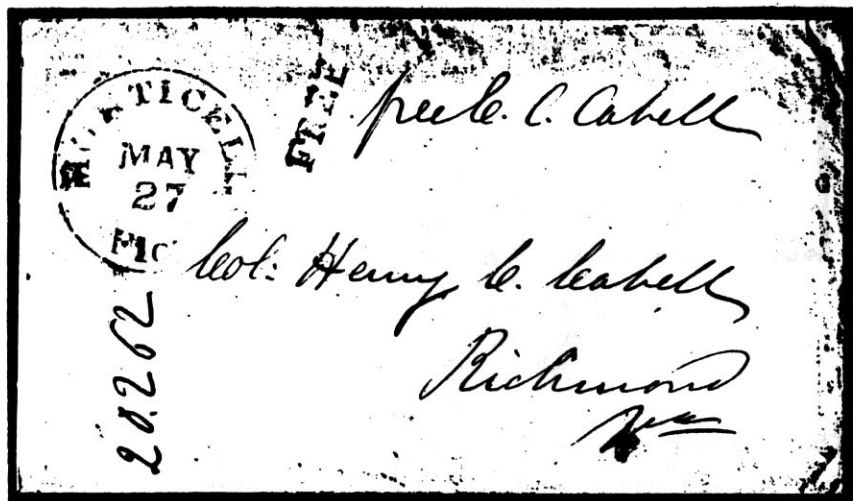 MONTICELL
MAY
27
FREE
free E. C. Cabell
Col: Henry C. Cabell
Richmond
Va
20.262